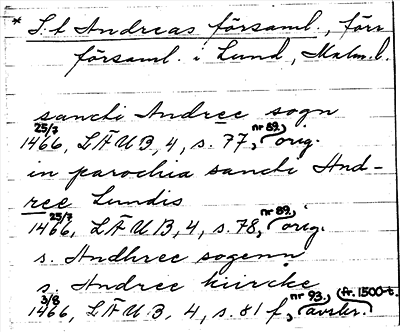 * S:t Andreas församl., förr
församl. i Lund, Malm. l.
sancti Andree sogn
25/7 1466, LÄUB, 4, s. 77, nr 89, orig.
in parochia sancti And-
ree Lundis
25/7 1466, LÄUB, 4, s. 78, nr 89, orig.
s. Andhree sogenn
s. Andree kiircke
3/8 1466, LÄUB, 4, s. 81 f, nr 93, avskr. (fr. 1500-t.)